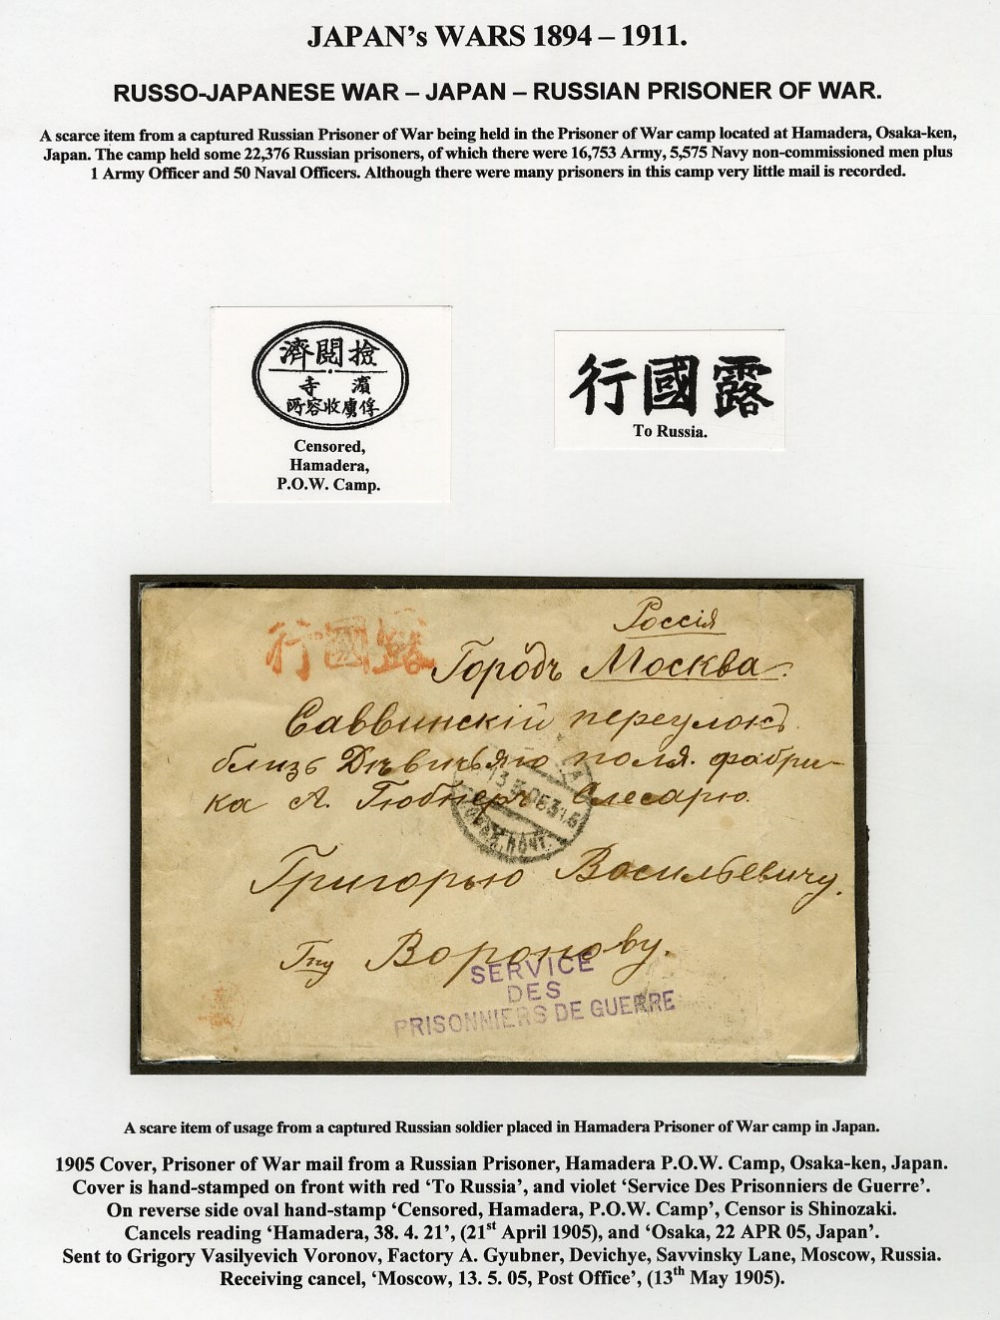 JAPAN's WARS 1894 – 1911.
RUSSO-JAPANESE WAR – JAPAN – RUSSIAN PRISONER OF WAR.
A scarce item from a captured Russian Prisoner of War being held in the Prisoner of War camp located at Hamadera, Osaka-ken,
Japan. The camp held some 22,376 Russian prisoners, of which there were 16,753 Army, 5,575 Navy non-commissioned men plus
1 Army Officer and 50 Naval Officers. Although there were many prisoners in this camp very little mail is recorded.
濟閲撿
寺濱
所容收虜俘
Censored,
Hamadera,
P.O.W. Camp.
行國露
To Russia.
行國露
Россія
Городъ Москва.
Саввинскій переулокъ
близъ Дѣвичьяго поля. фабри-
ка А. Гюбнеръ Слесарю.
13 5 05
ПОЧТ.
Григорью Васильевичу.
Гну Воронову.
SERVICE
DES
PRISONNIERS DE GUERRE
A scare item of usage from a captured Russian soldier placed in Hamadera Prisoner of War camp in Japan.
1905 Cover, Prisoner of War mail from a Russian Prisoner, Hamadera P.O.W. Camp, Osaka-ken, Japan.
Cover is hand-stamped on front with red ‘To Russia’, and violet ‘Service Des Prisonniers de Guerre’.
On reverse side oval hand-stamp ‘Censored, Hamadera, P.O.W. Camp’, Censor is Shinozaki.
Cancels reading ‘Hamadera, 38. 4. 21’, (21st April 1905), and ‘Osaka, 22 APR 05, Japan’.
Sent to Grigory Vasilyevich Voronov, Factory A. Gyubner, Devichye, Savvinsky Lane, Moscow, Russia.
Receiving cancel, ‘Moscow, 13. 5. 05, Post Office’, (13th May 1905).